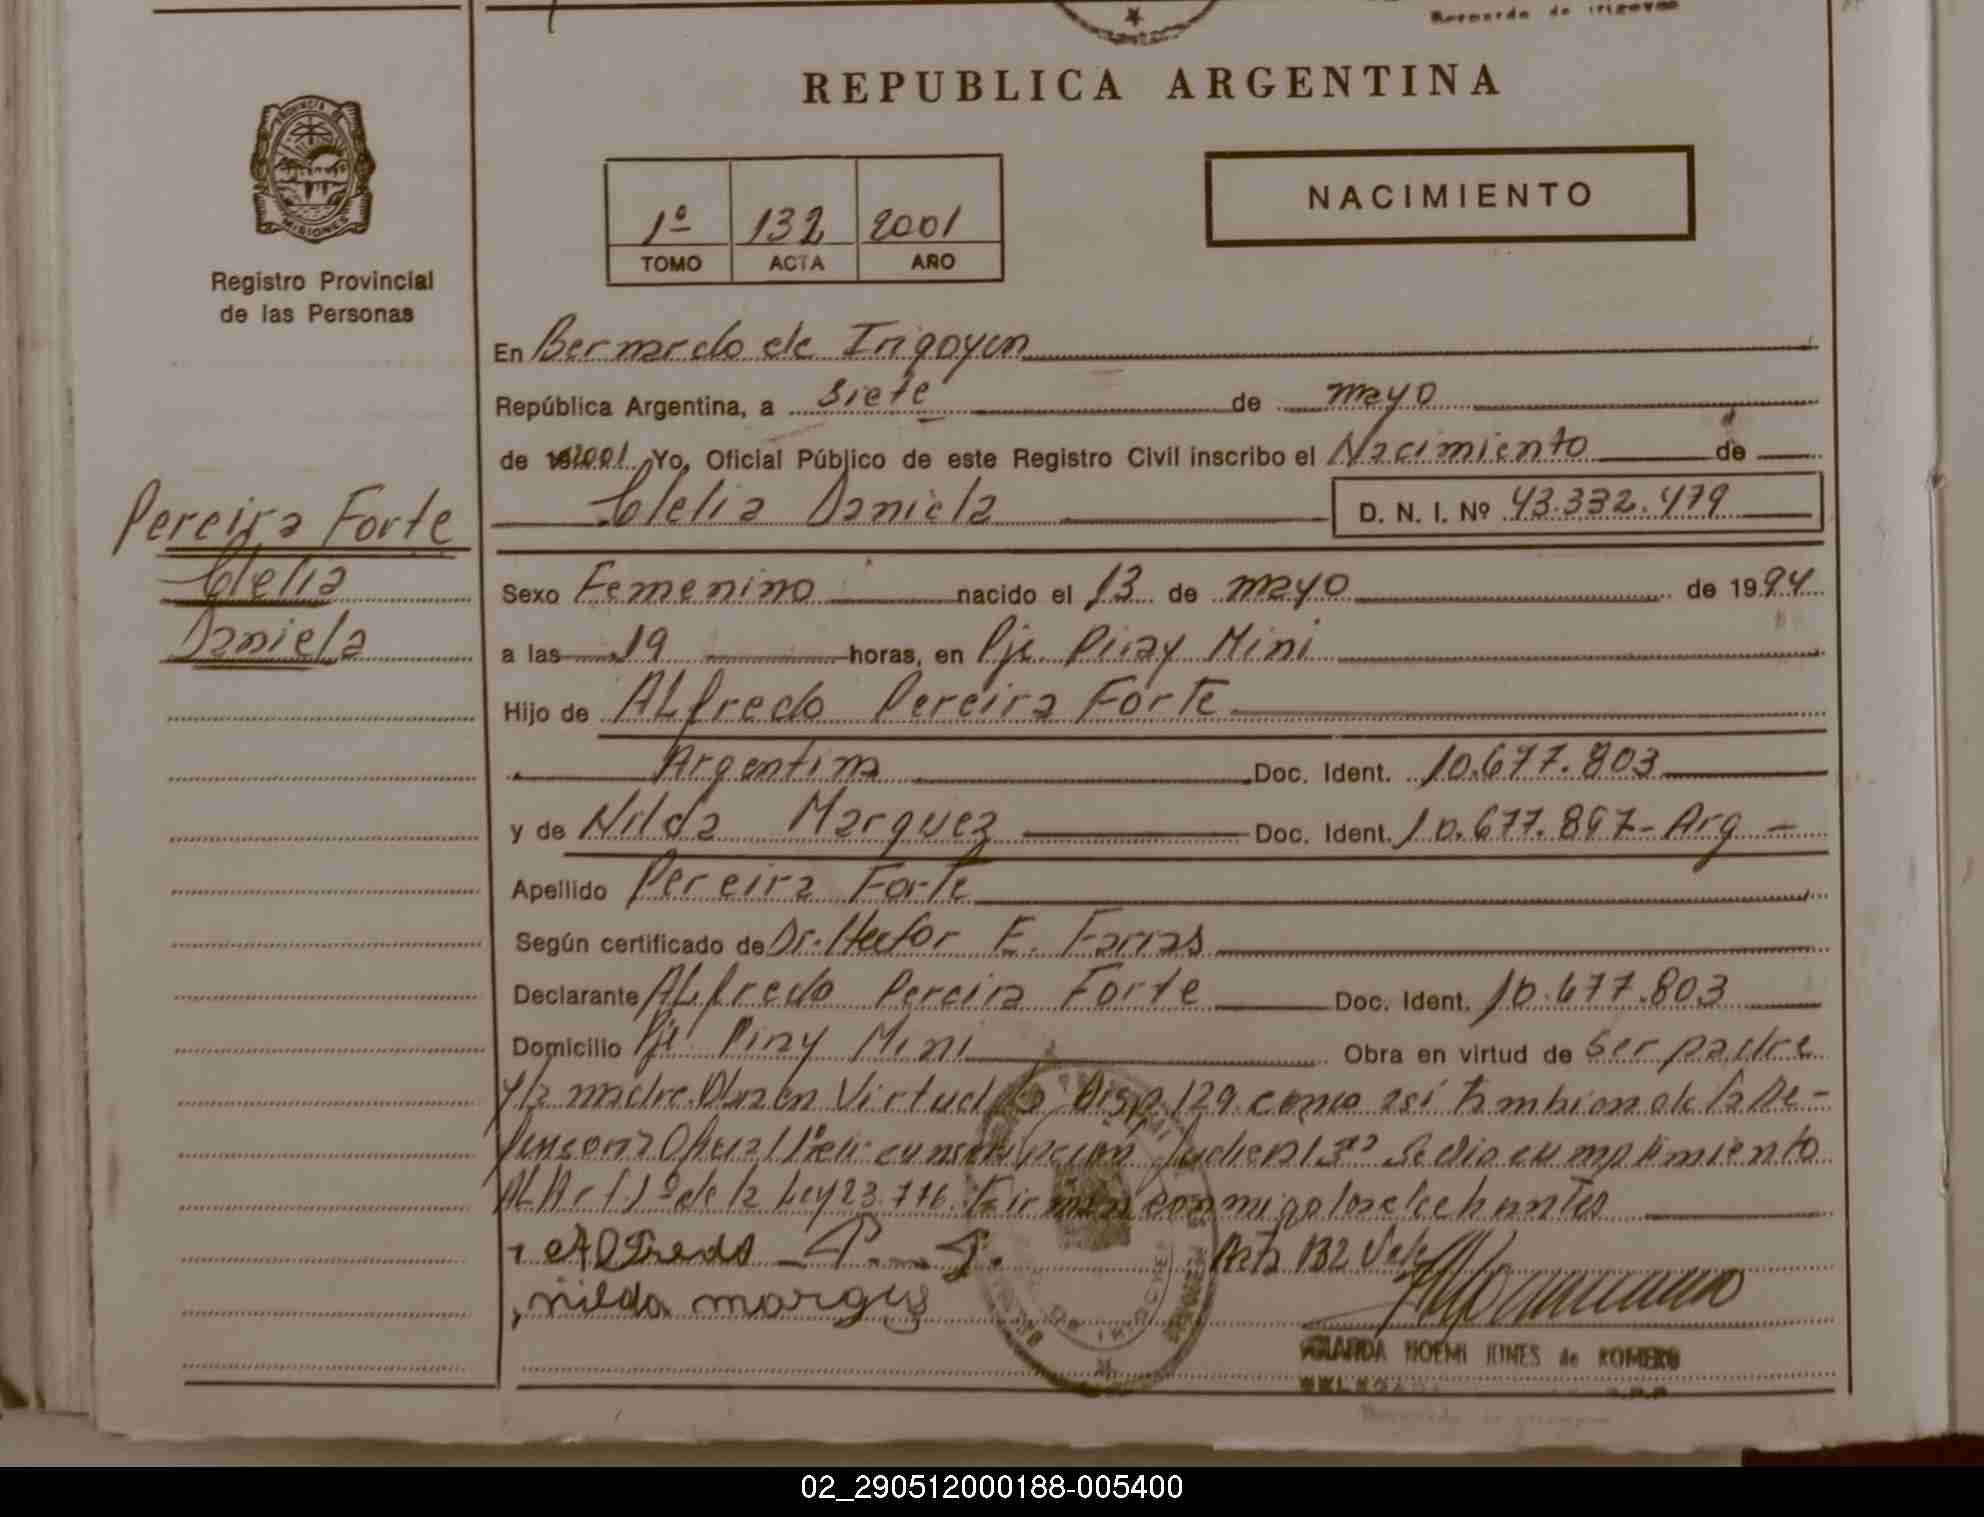 Bernardo de Irigoyen
REPUBLICA ARGENTINA
PROVINCIA DE
MISIONES
Registro Provincial
de las Personas
NACIMIENTO
1º 132 2001
TOMO ACTA AÑO
En Bernardo de Irigoyen
República Argentina, a siete de mayo
de 2001 Yo, Oficial Público de este Registro Civil inscribo el Nacimiento de
Clelia Daniela D. N. I. Nº 43.332.479
Pereira Forte
Clelia
Daniela
Sexo Femenino nacido el 13 de mayo de 1994
a las 19 horas, en Pje Piray Mini
Hijo de Alfredo Pereira Forte
Argentina Doc. Ident. 10.677.803
y de Nilda Marquez Doc. Ident. 10.677.897- Arg -
Apellido Pereira Forte
Según certificado de Dr. Hector E. Farias
Declarante Alfredo Pereira Forte Doc. Ident. 10.677.803
Domicilio Pje Piray Mini Obra en virtud de Ser padre
y la madre. Obra en Virtud Disp. 129 como así tambien de la De-
fensoria Oficial Judicial Se dio cumplimiento
Al Art. 1º de la Ley 23.776. Firman conmigo los
Alfredo P. F. Acta 132 Vale
nilda
NOEMI de ROMERO
02_290512000188-005400